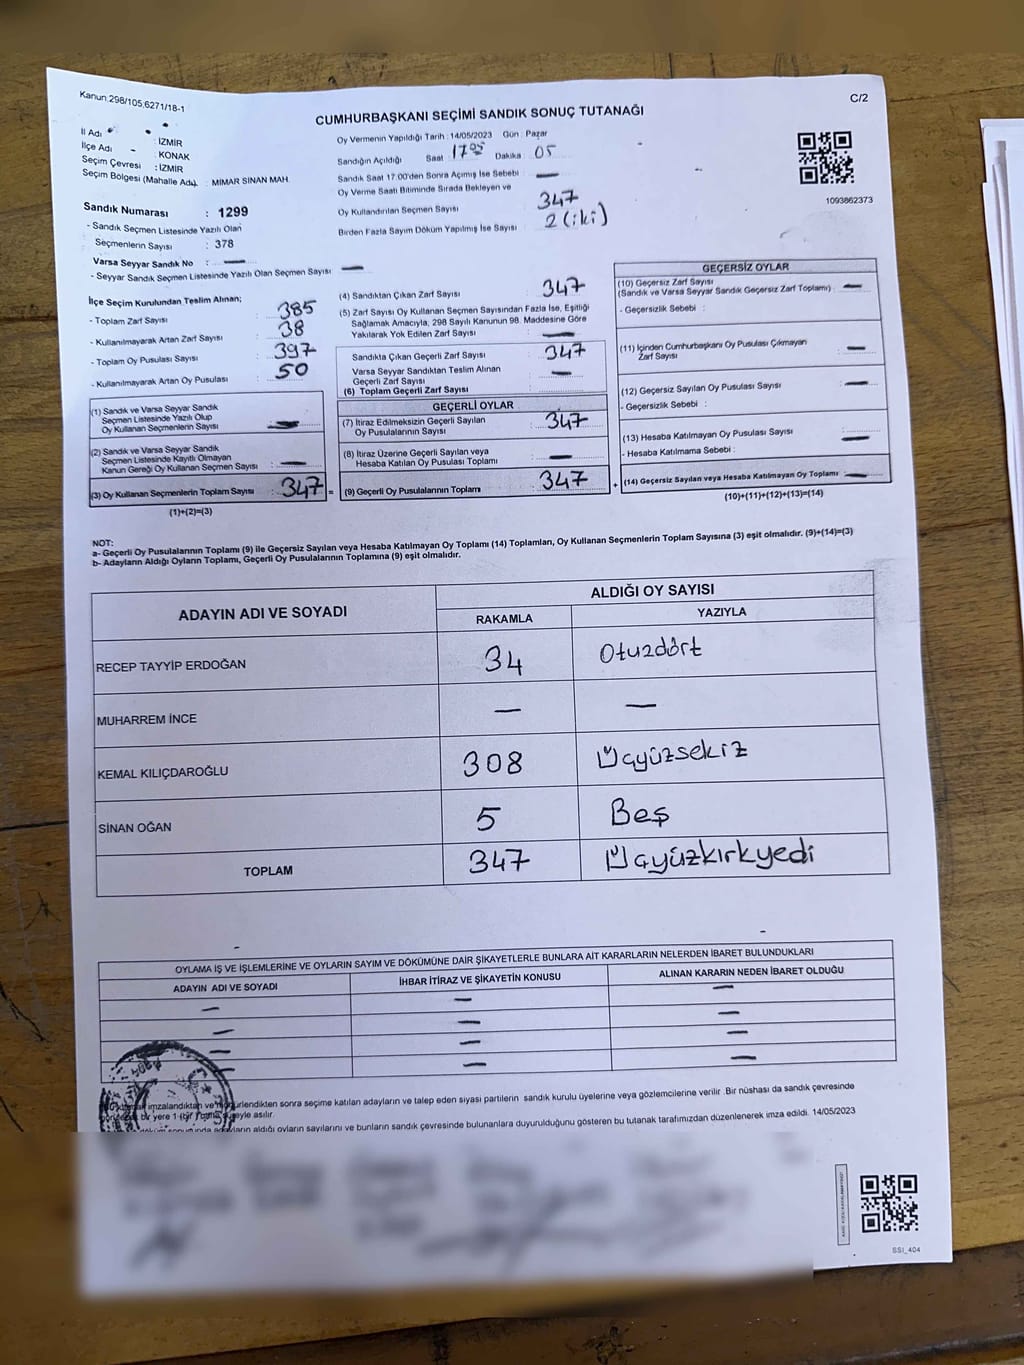 Kanun:298/105,6271/18-1
C/2
CUMHURBAŞKANI SEÇİMİ SANDIK SONUÇ TUTANAĞI
İl Adı : İZMİR
İlçe Adı : KONAK
Seçim Çevresi : İZMİR
Seçim Bölgesi (Mahalle Adı) : MİMAR SİNAN MAH.
Sandık Numarası : 1299
- Sandık Seçmen Listesinde Yazılı Olan
Seçmenlerin Sayısı : 378
Varsa Seyyar Sandık No : —
- Seyyar Sandık Seçmen Listesinde Yazılı Olan Seçmen Sayısı —
Oy Vermenin Yapıldığı Tarih : 14/05/2023 Gün : Pazar
Sandığın Açıldığı Saat 17:05 Dakika 05
Sandık Saat 17:00'den Sonra Açılmış İse Sebebi —
Oy Verme Saati Bitiminde Sırada Bekleyen ve
Oy Kullandırılan Seçmen Sayısı 347
Birden Fazla Sayım Döküm Yapılmış İse Sayısı 2 (iki)
1093862373
İlçe Seçim Kurulundan Teslim Alınan;
- Toplam Zarf Sayısı 385
- Kullanılmayarak Artan Zarf Sayısı 38
- Toplam Oy Pusulası Sayısı 397
- Kullanılmayarak Artan Oy Pusulası 50
(1) Sandık ve Varsa Seyyar Sandık
Seçmen Listesinde Yazılı Olup
Oy Kullanan Seçmenlerin Sayısı —
(2) Sandık ve Varsa Seyyar Sandık
Seçmen Listesinde Kayıtlı Olmayan
Kanun Gereği Oy Kullanan Seçmen Sayısı —
(3) Oy Kullanan Seçmenlerin Toplam Sayısı 347 =
(1)+(2)=(3)
(4) Sandıktan Çıkan Zarf Sayısı 347
(5) Zarf Sayısı Oy Kullanan Seçmen Sayısından Fazla İse, Eşitliği
Sağlamak Amacıyla; 298 Sayılı Kanunun 98. Maddesine Göre
Yakılarak Yok Edilen Zarf Sayısı —
Sandıkta Çıkan Geçerli Zarf Sayısı 347
Varsa Seyyar Sandıktan Teslim Alınan
Geçerli Zarf Sayısı —
(6) Toplam Geçerli Zarf Sayısı
GEÇERLİ OYLAR
(7) İtiraz Edilmeksizin Geçerli Sayılan
Oy Pusulalarının Sayısı 347
(8) İtiraz Üzerine Geçerli Sayılan veya
Hesaba Katılan Oy Pusulası Toplamı —
(9) Geçerli Oy Pusulalarının Toplamı 347 +
GEÇERSİZ OYLAR
(10) Geçersiz Zarf Sayısı
(Sandık ve Varsa Seyyar Sandık Geçersiz Zarf Toplamı) —
- Geçersizlik Sebebi :
(11) İçinden Cumhurbaşkanı Oy Pusulası Çıkmayan
Zarf Sayısı —
(12) Geçersiz Sayılan Oy Pusulası Sayısı —
- Geçersizlik Sebebi :
(13) Hesaba Katılmayan Oy Pusulası Sayısı —
- Hesaba Katılmama Sebebi :
(14) Geçersiz Sayılan veya Hesaba Katılmayan Oy Toplamı —
(10)+(11)+(12)+(13)=(14)
NOT:
a- Geçerli Oy Pusulalarının Toplamı (9) ile Geçersiz Sayılan veya Hesaba Katılmayan Oy Toplamı (14) Toplamları, Oy Kullanan Seçmenlerin Toplam Sayısına (3) eşit olmalıdır. (9)+(14)=(3)
b- Adayların Aldığı Oyların Toplamı, Geçerli Oy Pusulalarının Toplamına (9) eşit olmalıdır.
ADAYIN ADI VE SOYADI ALDIĞI OY SAYISI
RAKAMLA YAZIYLA
RECEP TAYYİP ERDOĞAN 34 Otuzdört
MUHARREM İNCE — —
KEMAL KILIÇDAROĞLU 308 Üçyüzsekiz
SİNAN OĞAN 5 Beş
TOPLAM 347 Üçyüzkırkyedi
OYLAMA İŞ VE İŞLEMLERİNE VE OYLARIN SAYIM VE DÖKÜMÜNE DAİR ŞİKAYETLERLE BUNLARA AİT KARARLARIN NELERDEN İBARET BULUNDUKLARI
ADAYIN ADI VE SOYADI İHBAR İTİRAZ VE ŞİKAYETİN KONUSU ALINAN KARARIN NEDEN İBARET OLDUĞU
— — —
— — —
— — —
— — —
imzalandıktan ve mühürlendikten sonra seçime katılan adayların ve talep eden siyasi partilerin sandık kurulu üyelerine veya gözlemcilerine verilir. Bir nüshası da sandık çevresinde
bir yere 1 (bir) süreyle asılır.
adayların aldığı oyların sayılarını ve bunların sandık çevresinde bulunanlara duyurulduğunu gösteren bu tutanak tarafımızdan düzenlenerek imza edildi. 14/05/2023
SSI_404